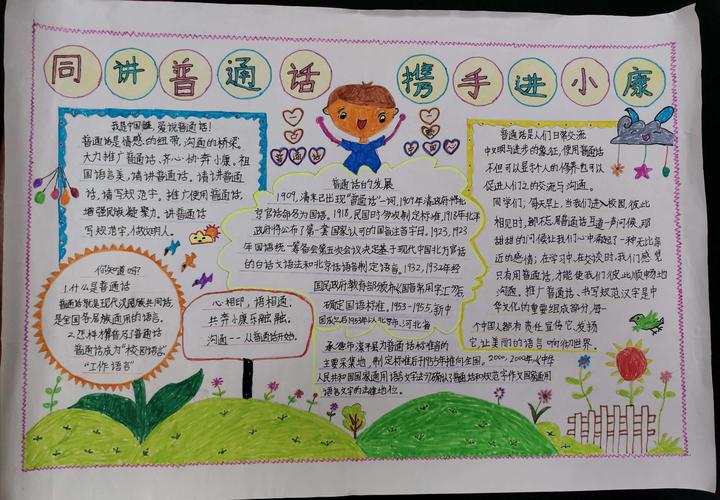 同讲普通话 携手进小康
我是中国娃,爱说普通话!
普通话是情感的纽带,沟通的桥梁。
大力推广普通话,齐心协奔小康,祖
国语言美,请讲普通话。请讲普通
话,请写规范字。推广使用普通话,
增强民族凝聚力,讲普通话
写规范字,做文明人。
你知道吗?
1.什么是普通话
普通话就是现代汉民族共同话
是全国各民族通用的语言。
2.怎样推普及普通话
普通话成为“校园语言”
“工作语言”
心相印,语相通,
共奔小康乐融融。
沟通——从普通话开始。
普通话
普通话的发展
1909,清末已出现“普通话”一词,1909年清政府将北
京官话命名为国语。1918,民国时期
北洋
政府将公布了第一套国家认可的国音注音字母。1923,1923
年国语统一筹备会第五次会议决定基于现代中国北方官话
的白话文语法和北京话语音制定语言。1932,1932年经
国民政府教育部颁布《国音常用字
确定国语标准。1953—1955,新中
河北省
承德市滦平县为普通话标准音的
主要采集地,制定标准后于1955年推向全国。2000,2000年《中华
人民共和国国家通用语言文字法》
普通话和规范字作文国家通用
语言文字的法律地位。
普通话是人们日常交流
中文明与进步的象征,使用普通话
不但可以显示个人的修养也可以
促进人们之的交流与沟通。
同学们,每天早上,当我们进入校园,彼此
相见时,都不忘用普通话互道一声问候,那
甜甜的问候让我们心中涌起了一种无比亲
近的感情;在学习中,在交谈时,我们感觉
只有用普通话,才能使我们彼此顺畅地
沟通。推广普通话、书写规范汉字是中
华文化的重要组成部分,每一
个中国人都有责任宣传它、发扬
它,让美丽的语言响彻世界。